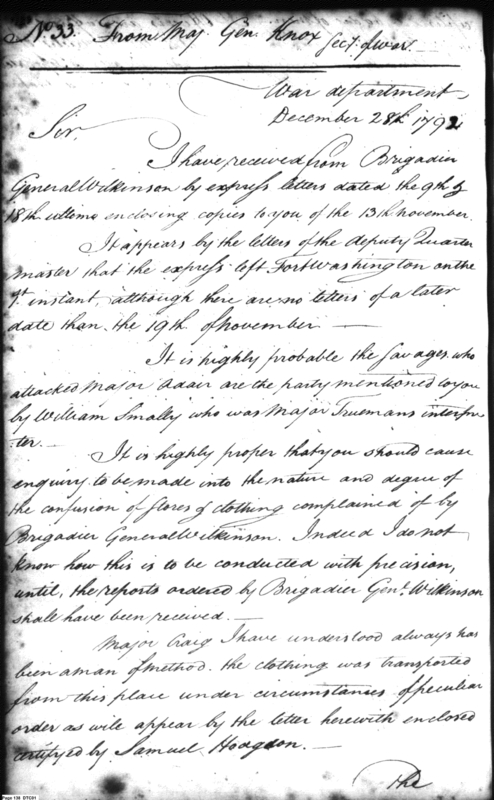 No 33. From Maj. Gen. Knox Secy. of war.
War department,
December 28th 1792
Sir,
I have received from Brigadier
General Wilkinson by express letters dated the 9th &
18th ultimo enclosing copies to you of the 13th november.
It appears by the letters of the deputy Quarter
master that the express left Fort Washington on the
1st. instant, although there are no letters of a later
date than the 19th of november. —
It is highly probable the savages who
attacked Major Adair are the party mentioned to you
by William Smally who was Major Truemans interpre
ter. —
It is highly proper that you should cause
enquiry to be made into the nature and degree of
the confusion of stores & clothing complained of by
Brigadier General Wilkinson. Indeed I do not
know how this is to be conducted with precision,
until, the reports ordered by Brigadier Genl. Wilkinson
shall have been received. —
Major Craig I have understood always has
been a man of method. the clothing was transported
from this place under circumstances of peculiar
order as will appear by the letter herewith enclosed
certifyed by Samuel Hodgdon. —
The
Page 136 DTC01